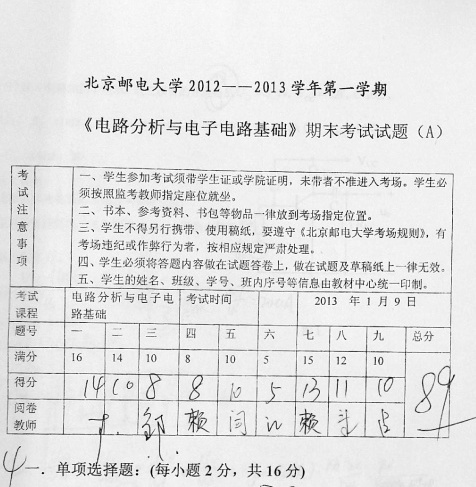 北京邮电大学2012——2013学年第一学期
《电路分析与电子电路基础》期末考试试题（A）
考试注意事项
一、学生参加考试须带学生证或学院证明，未带者不准进入考场。学生必
须按照监考教师指定座位就坐。
二、书本、参考资料、书包等物品一律放到考场指定位置。
三、学生不得另行携带、使用稿纸，要遵守《北京邮电大学考场规则》，有
考场违纪或作弊行为者，按相应规定严肃处理。
四、学生必须将答题内容做在试题答卷上，做在试题及草稿纸上一律无效。
五、学生的姓名、班级、学号、班内序号等信息由教材中心统一印制。
考试课程 电路分析与电子电路基础 考试时间 2013 年 1 月 9 日
题号 一 二 三 四 五 六 七 八 九 总分
满分 16 14 10 8 10 5 15 12 10
得分 14 10 8 8 10 5 13 11 10 89
阅卷教师 赖 闫 赖
4
一．单项选择题：(每小题 2 分，共 16 分)